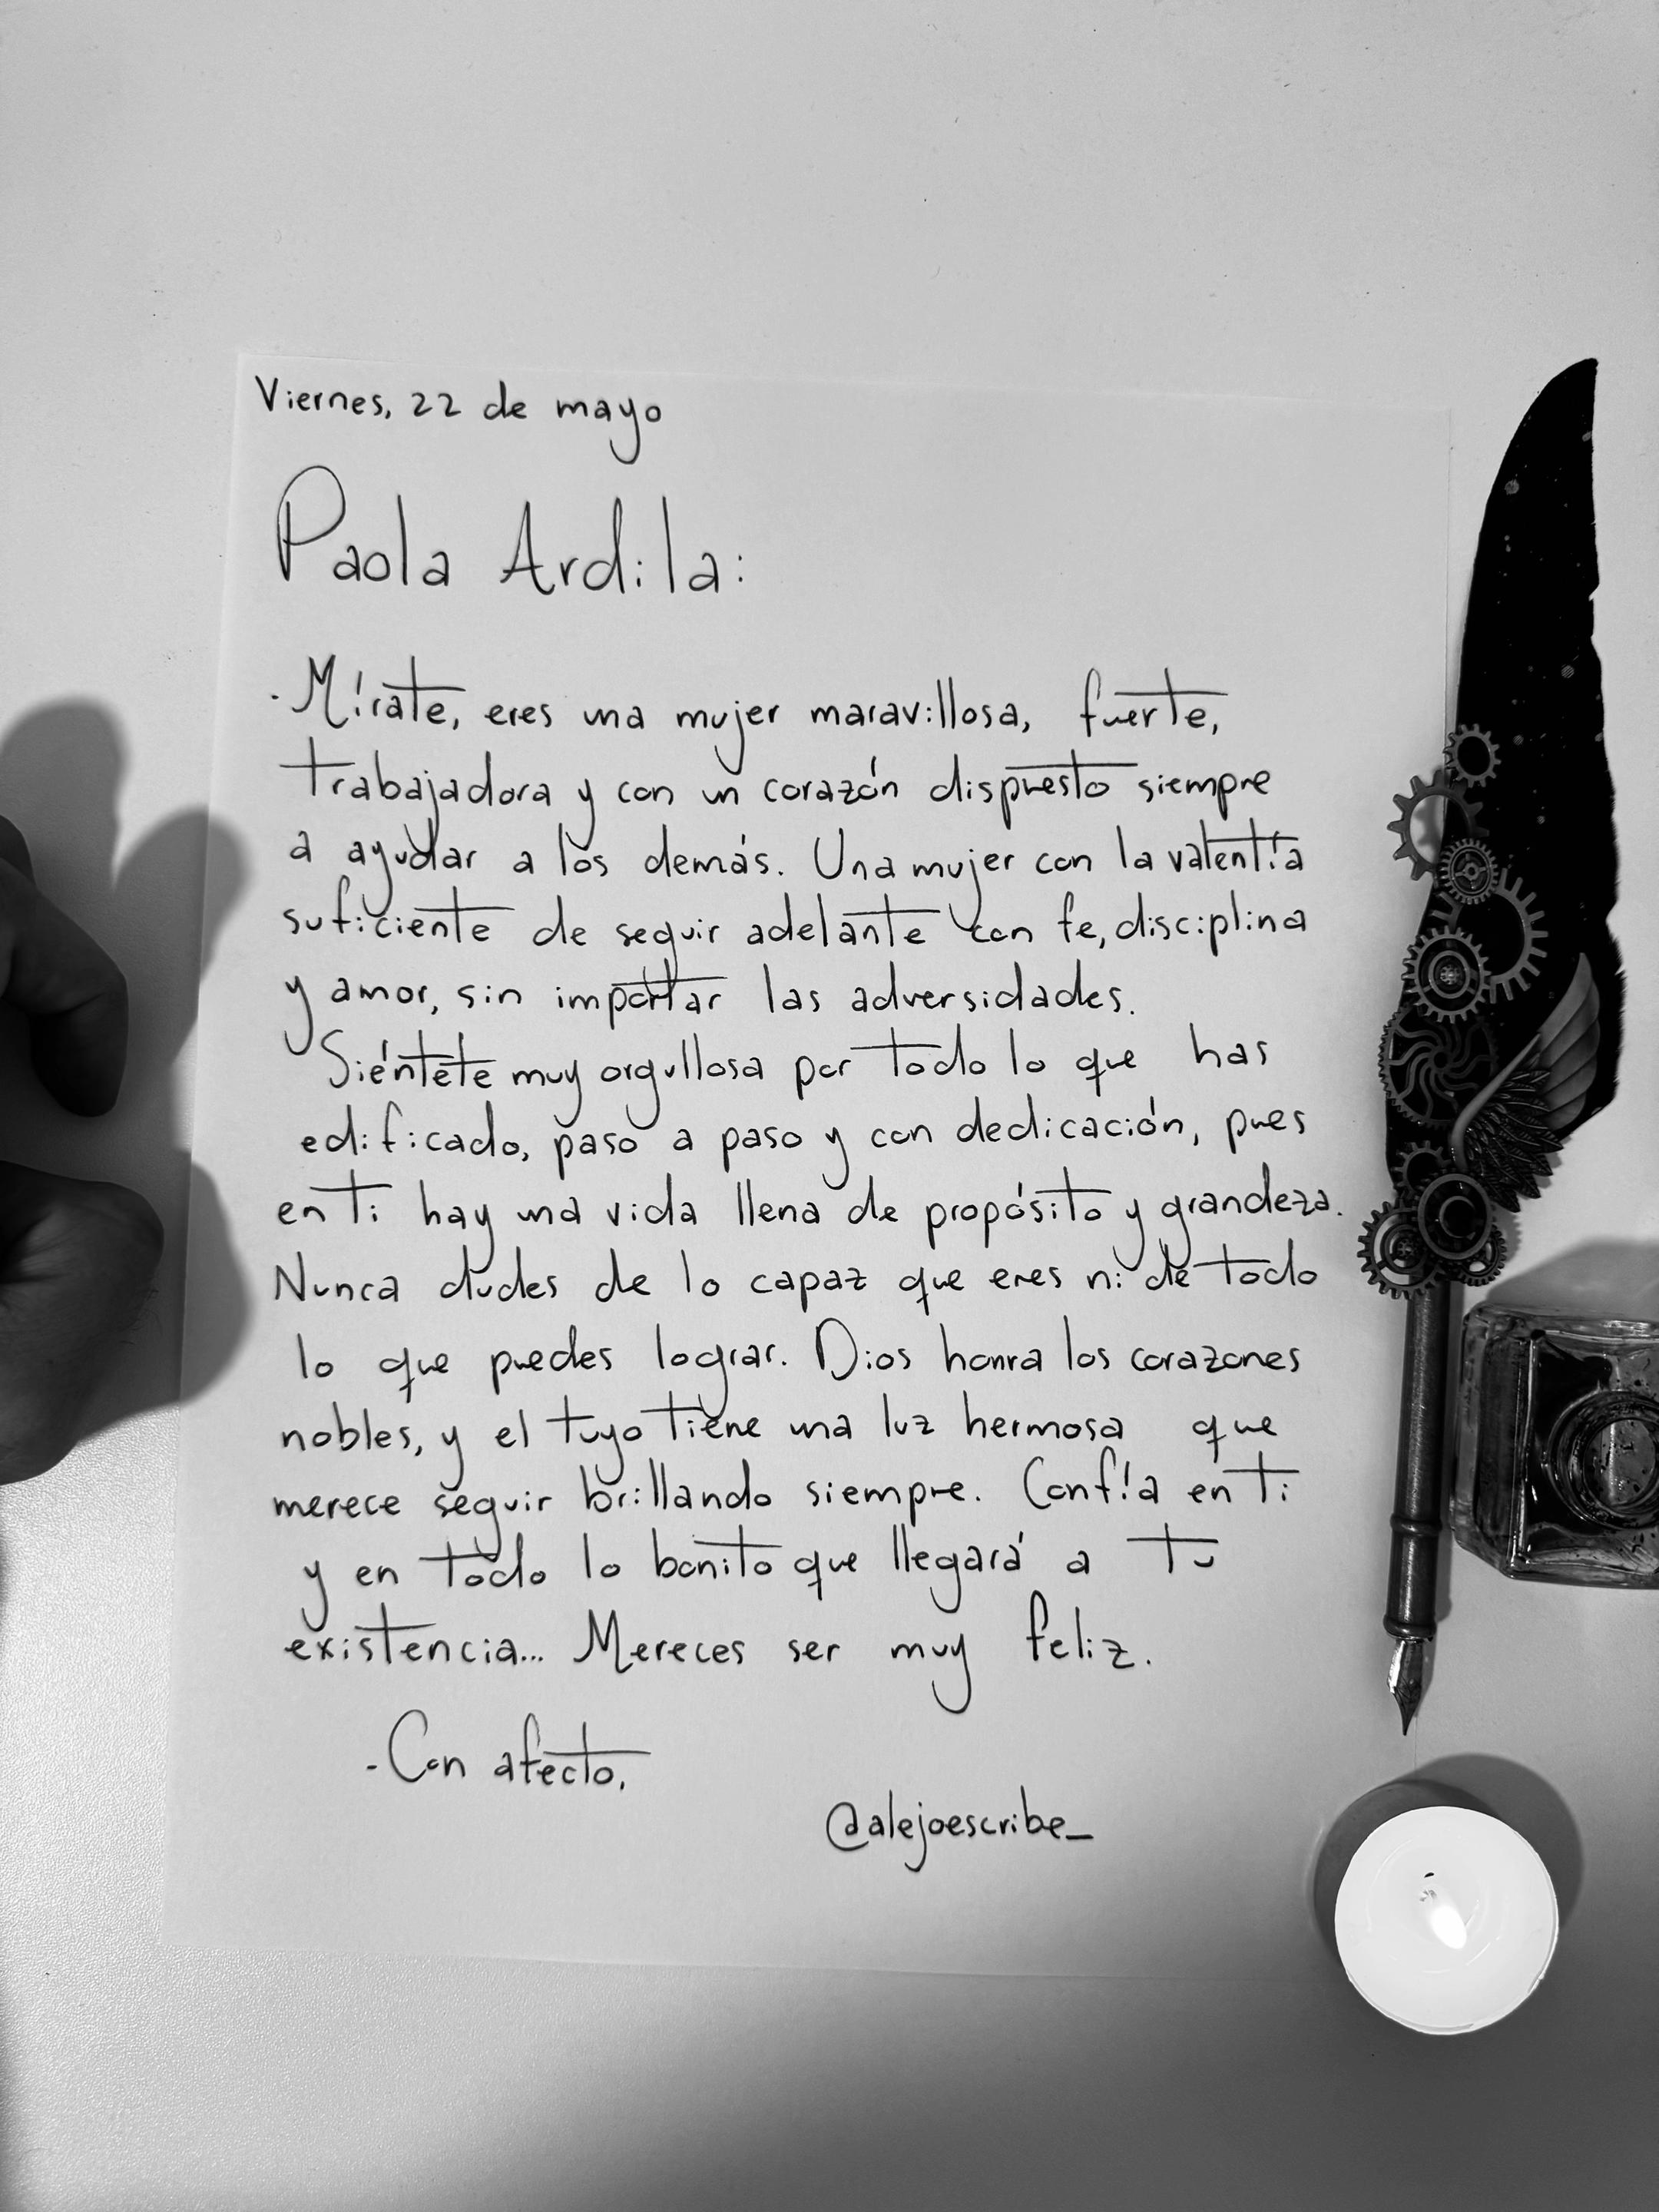 Viernes, 22 de mayo
Paola Ardila:
-Mírate, eres una mujer maravillosa, fuerte,
trabajadora y con un corazón dispuesto siempre
a ayudar a los demás. Una mujer con la valentía
suficiente de seguir adelante con fe, disciplina
y amor, sin importar las adversidades.
Siéntete muy orgullosa por todo lo que has
edificado, paso a paso y con dedicación, pues
en ti hay una vida llena de propósito y grandeza.
Nunca dudes de lo capaz que eres ni de todo
lo que puedes lograr. Dios honra los corazones
nobles, y el tuyo tiene una luz hermosa que
merece seguir brillando siempre. Confía en ti
y en todo lo bonito que llegará a tu
existencia... Mereces ser muy feliz.
-Con afecto,
@alejoescribe_